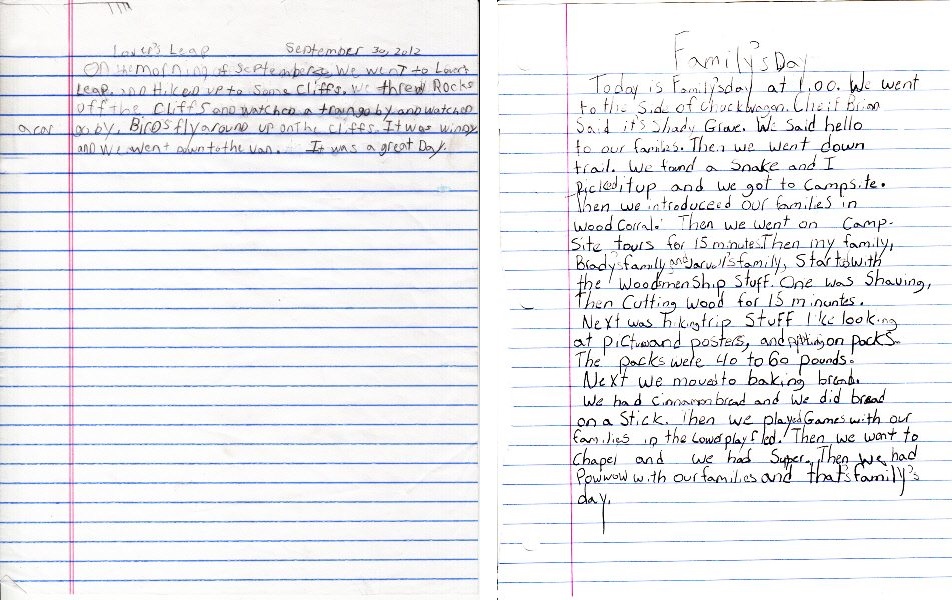 Lover's Leap September 30, 2012
On the morning of September 30 We went to Lover's
Leap. and Hiked up to some Cliffs. we thred Rocks
off the cliffs and watched a train go by and watched
a car go by, Birds fly around up on the cliffs. It was windy
and we went down to the van. It was a great Day.
Family's Day
Today is Family'sday at 1:00. We went
to the side of chuckwagon. Cheif Brian
Said it's Shady Grove. We Said hello
to our families. Then we went down
trail. We found a snake and I
Picked it up and we got to Campsite.
Then we introduceed our families in
Wood Corral. Then we went on Camp-
Site tours for 15 minutes. Then my family,
Brady'sfamily and Jarvell'sfamily, Started with
the Woodsmen Ship Stuff. One was Shaving,
Then Cutting Wood for 15 minuntes.
Next was hikingtrip Stuff like looking
at pictureand posters, and putting on packs.
The packs were 40 to 60 pounds.
Next we moved to baking bread.
We had cinnamon bread and we did bread
on a Stick. Then we played Games with our
families in the Lower play fled. Then we want to
Chapel and we had Super. Then we had
Powwow with our families and that's family's
day.